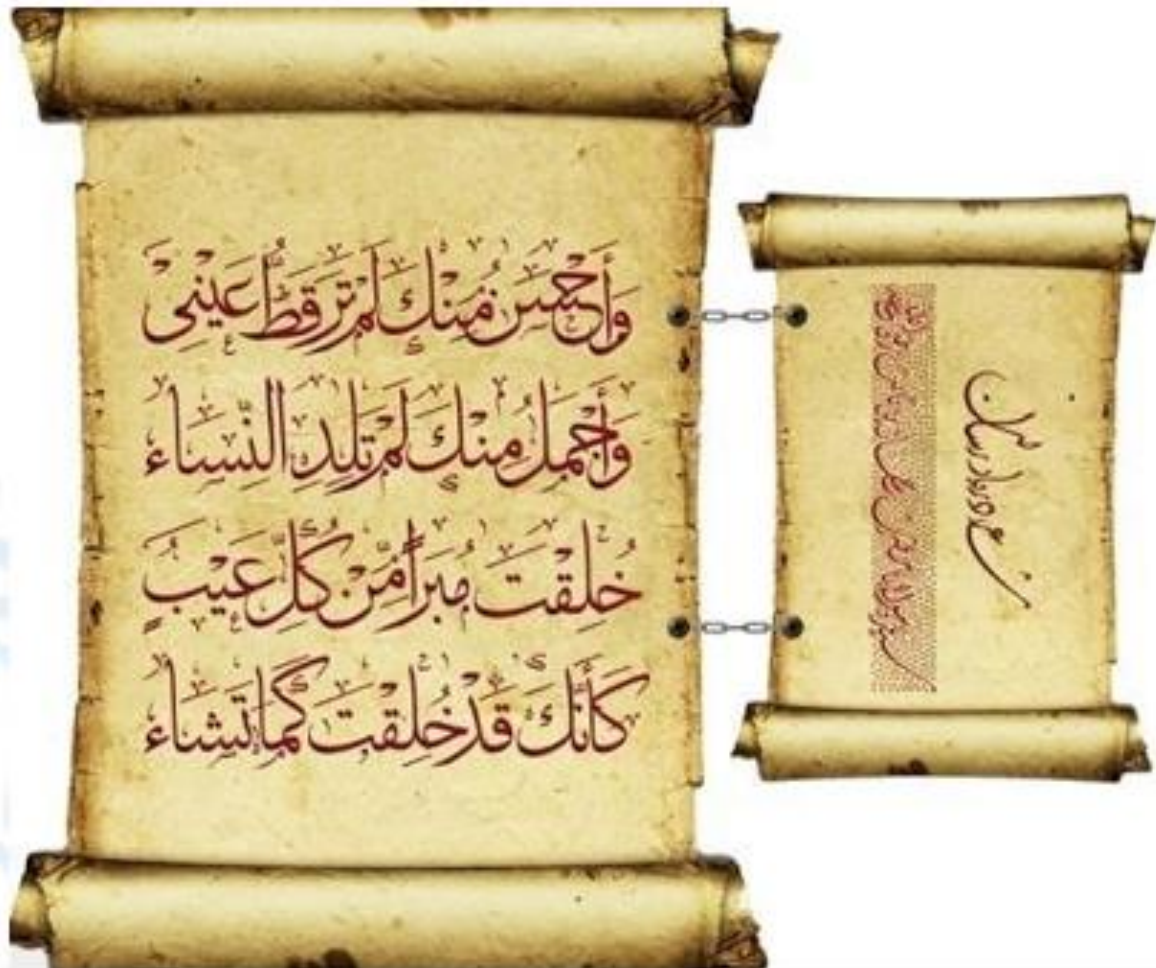 وَأَحْسَنَ مِنْكَ لَمْ تَرَ قَطُّ عَيْنِي
وَأَجْمَلَ مِنْكَ لَمْ تَلِدِ النِّسَاءُ
خُلِقْتَ مُبَرَّأً مِّنْ كُلِّ عَيْبٍ
كَأَنَّكَ قَدْ خُلِقْتَ كَمَا تَشَاءُ